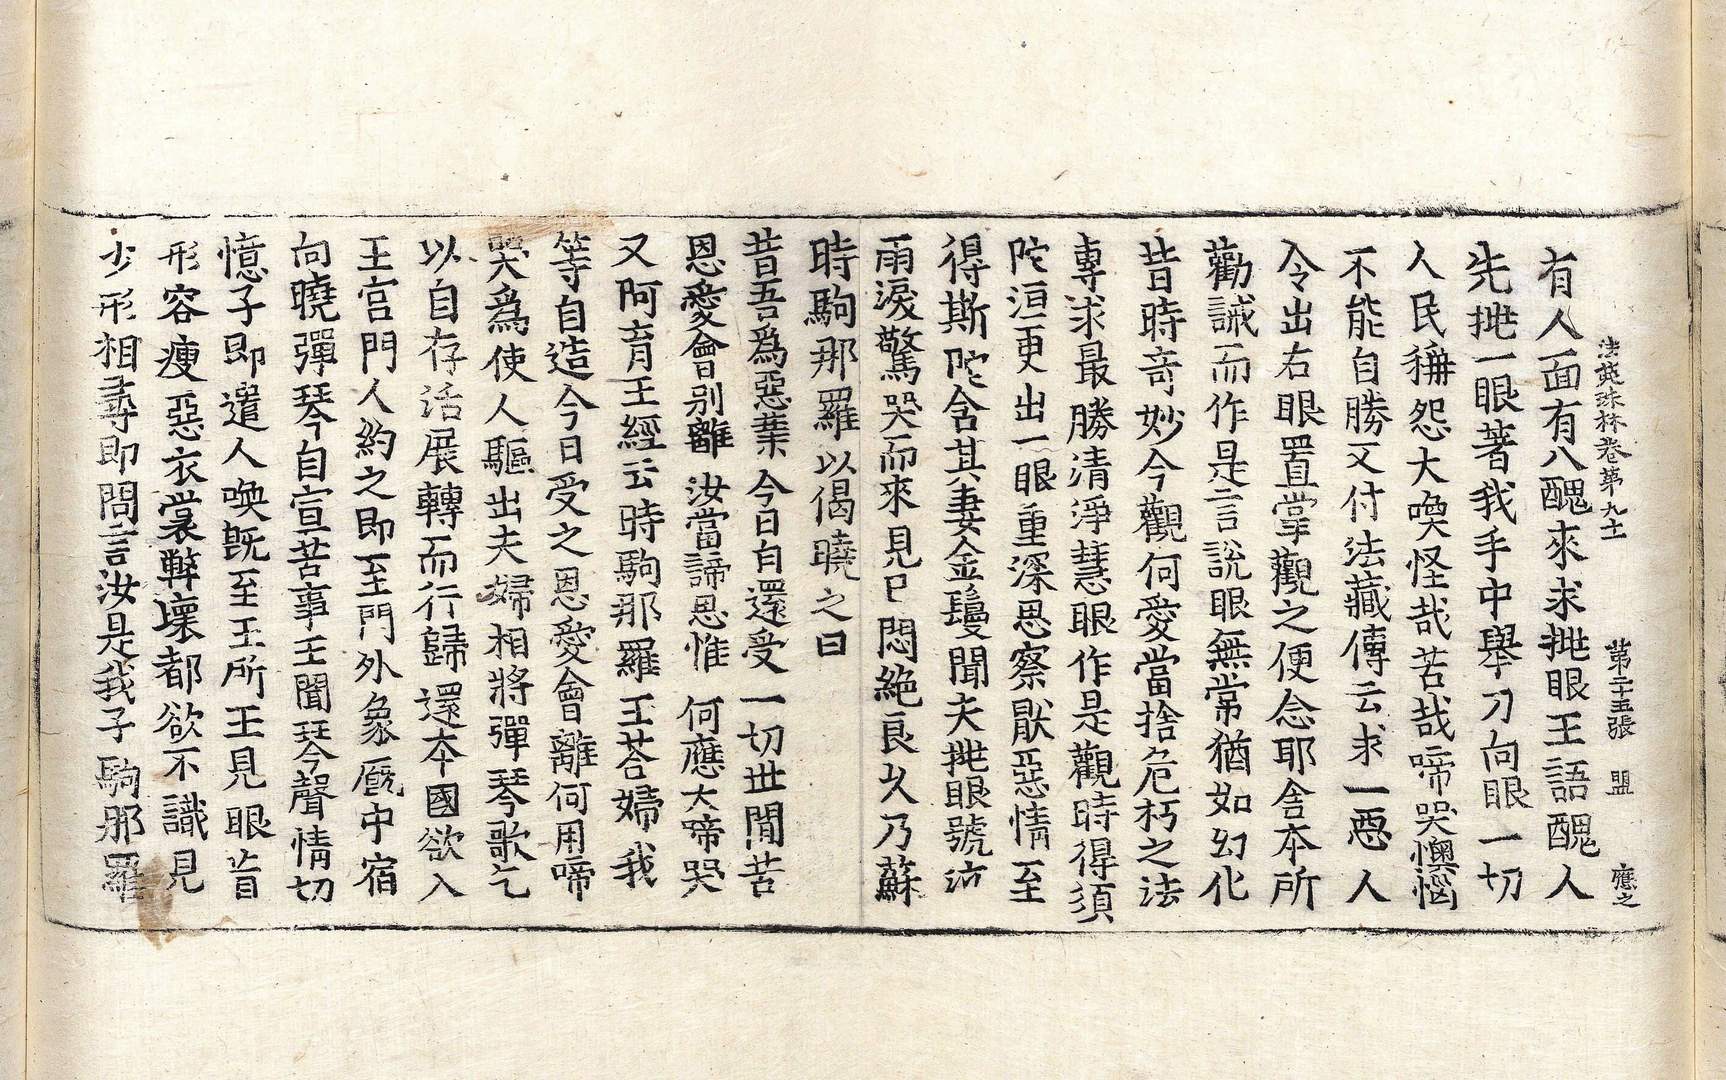 法苑珠林卷第九十一 第二十五張 盟 應之
有人面有八醜來求挑眼王語醜人
先挑一眼著我手中舉刀向眼一切
人民稱怨大喚怪哉苦哉啼哭懊惱
不能自勝又付法藏傳云求一惡人
令出右眼置掌觀之便念耶舍本所
勸誡而作是言說眼無常猶如幻化
昔時奇妙今觀何愛當捨危朽之法
專求最勝清淨慧眼作是觀時得須
陀洹更出一眼重深思察猒惡情至
得斯陀含其妻金鬘聞夫挑眼號泣
雨淚驚哭而來見巳悶絶良久乃蘇
時駒那羅以偈曉之曰
昔吾爲惡業 今日自還受 一切世間苦
恩愛會別離 汝當諦思惟 何應大啼哭
又阿育王經云時駒那羅王荅婦我
等自造今日受之恩愛會離何用啼
哭爲使人驅出夫婦相將彈琴歌乞
以自存活展轉而行歸還本國欲入
王宮門人約之即至門外象廐中宿
向曉彈琴自宣苦事王聞琴聲情切
憶子即遣人喚旣至王所王見眼盲
形容瘦惡衣裳弊壞都欲不識見
少形相尋即問言汝是我子駒那羅